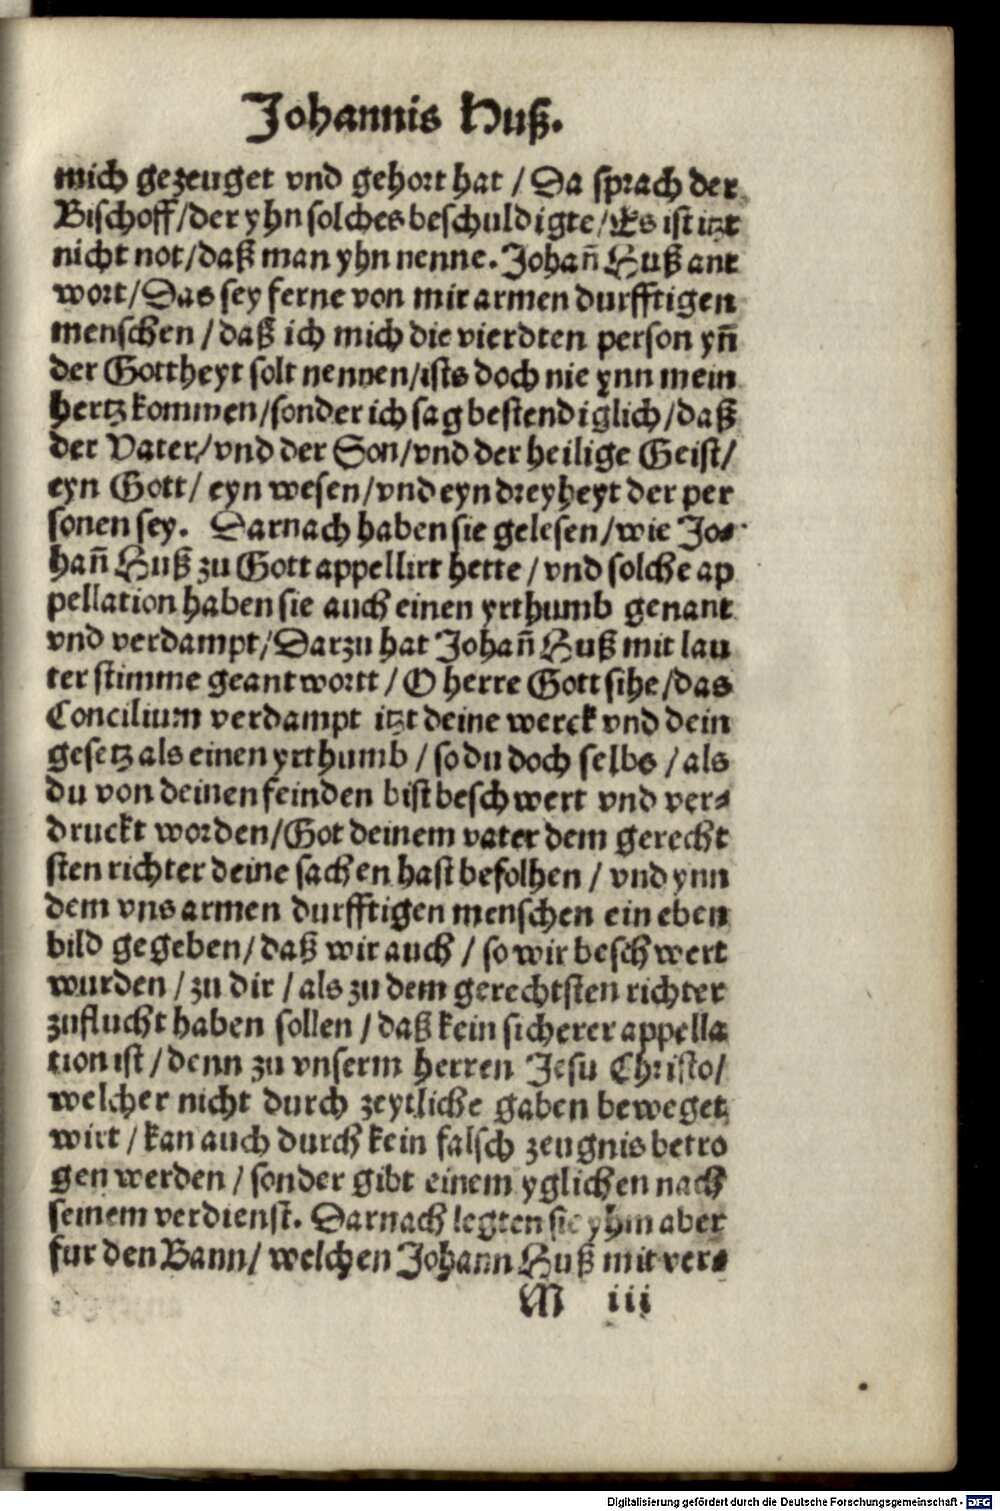 Johannis Huß.
mich gezeuget vnd gehort hat / Da sprach der
Bischoff/der yhn solches beschuldigte/Es ist itzt
nicht not/daß man yhn nenne. Johañ Huß ant
wort/Das sey ferne von mir armen durfftigen
menschen / daß ich mich die vierdten person yñ
der Gottheyt solt nennen/ists doch nie ynn mein
hertz kommen/sonder ich sag bestendiglich/daß
der Vater/vnd der Son/vnd der heilige Geist/
eyn Gott/ eyn wesen/vnd eyn dreyheyt der per
sonen sey. Darnach haben sie gelesen/wie Jo⸗
hañ Huß zu Gott appellirt hette / vnd solche ap
pellation haben sie auch einen yrthumb genant
vnd verdampt/Darzu hat Johañ Huß mit lau
ter stimme geantwortt / O herre Gott sihe/das
Concilium verdampt itzt deine werck vnd dein
gesetz als einen yrthumb / so du doch selbs / als
du von deinen feinden bist beschwert vnd ver⸗
druckt worden/Got deinem vater dem gerecht
sten richter deine sachen hast befolhen / vnd ynn
dem vns armen durfftigen menschen ein eben
bild gegeben/daß wir auch / so wir beschwert
wurden / zu dir / als zu dem gerechtsten richter
zuflucht haben sollen / daß kein sicherer appella
tion ist / denn zu vnserm herren Jesu Christo/
welcher nicht durch zeytliche gaben beweget
wirt / kan auch durch kein falsch zeugnis betro
gen werden / sonder gibt einem yglichen nach
seinem verdienst. Darnach legten sie yhm aber
fur den Bann/ welchen Johann Huß mit ver⸗
M iii
Digitalisierung gefördert durch die Deutsche Forschungsgemeinschaft - DFG